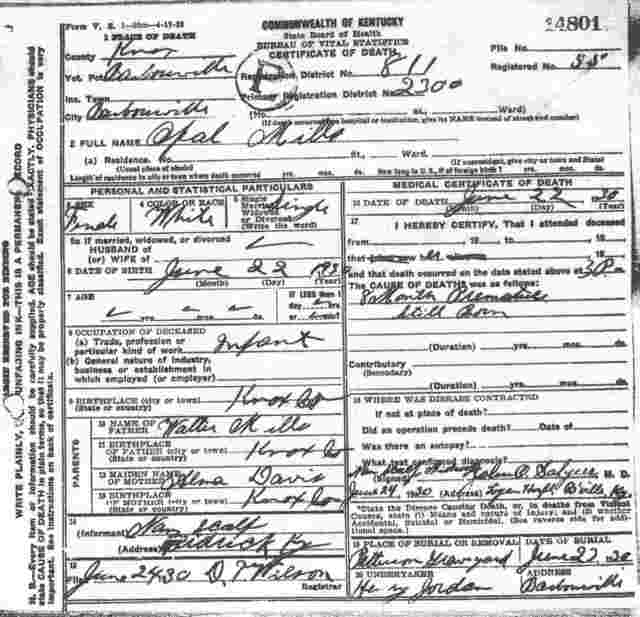 Form V. S. 1-50m-4-17-28
COMMONWEALTH OF KENTUCKY
State Board of Health
BUREAU OF VITAL STATISTICS
CERTIFICATE OF DEATH
14801
1 PLACE OF DEATH
County Knox
File No.
Vot. Pct. Barbourville
Registration District No. 811
Registered No.
Ins. Town
Primary Registration District No. 2300
City Barbourville
(No. St., Ward)
(If death occurred in hospital or institution, give its NAME instead of street and number)
2 FULL NAME Opal Mills
(a) Residence. No. St., Ward.
(Usual place of abode) (If nonresident, give city or town and State)
Length of residence in city or town where death occurred yrs. mos. ds. How long in U. S., if of foreign birth? yrs. mos. ds.
PERSONAL AND STATISTICAL PARTICULARS
3 SEX Female
4 COLOR OR RACE White
5 Single Married Widowed or Divorced (Write the word) Single
5a If married, widowed, or divorced
HUSBAND of
(or) WIFE of
6 DATE OF BIRTH June 22
(Month) (Day) (Year)
7 AGE
IF LESS than 1
yrs. mos. ds.
8 OCCUPATION OF DECEASED
(a) Trade, profession or
particular kind of work Infant
(b) General nature of industry,
business or establishment in
which employed (or employer)
9 BIRTHPLACE (city or town) Knox Co
(State or country)
PARENTS
10 NAME OF
FATHER Walter Mills
11 BIRTHPLACE
OF FATHER (city or town) Knox Co
(State or country)
12 MAIDEN NAME
OF MOTHER Davis
13 BIRTHPLACE
OF MOTHER (city or town) Knox Co
(State or country)
14
(Informant)
(Address) Ky
15
Filed June 24 30 D. T. Wilson
Registrar
MEDICAL CERTIFICATE OF DEATH
16 DATE OF DEATH June 22 1930
(Month) (Day) (Year)
17
I HEREBY CERTIFY, That I attended deceased
from 19 to 19
that I last saw h alive on 19
and that death occurred on the date stated above at
The CAUSE OF DEATH was as follows:
8 Month Premature
Still Born
(Duration) yrs. mos. ds.
Contributory
(Secondary)
(Duration) yrs. mos. ds.
18 WHERE WAS DISEASE CONTRACTED
If not at place of death?
Did an operation precede death? Date of
Was there an autopsy?
What test confirmed diagnosis?
(Signed) M. D.
June 24, 1930 (Address) B'ville Ky
*State the Disease Causing Death, or, in deaths from Violent
Causes, state (1) Means and nature of Injury; and (2) whether
Accidental, Suicidal or Homicidal. (See reverse side for additional space.)
19 PLACE OF BURIAL OR REMOVAL DATE OF BURIAL
Graveyard June
20 UNDERTAKER ADDRESS
Henry Jordan Barbourville
MARGIN RESERVED FOR BINDING
WRITE PLAINLY, UNFADING INK—THIS IS A PERMANENT RECORD
N. B.—Every item of information should be carefully supplied. AGE should be stated EXACTLY. PHYSICIANS should
state CAUSE OF DEATH in plain terms, so that it may be properly classified. Exact statement of OCCUPATION is very
important. See instructions on back of certificate.